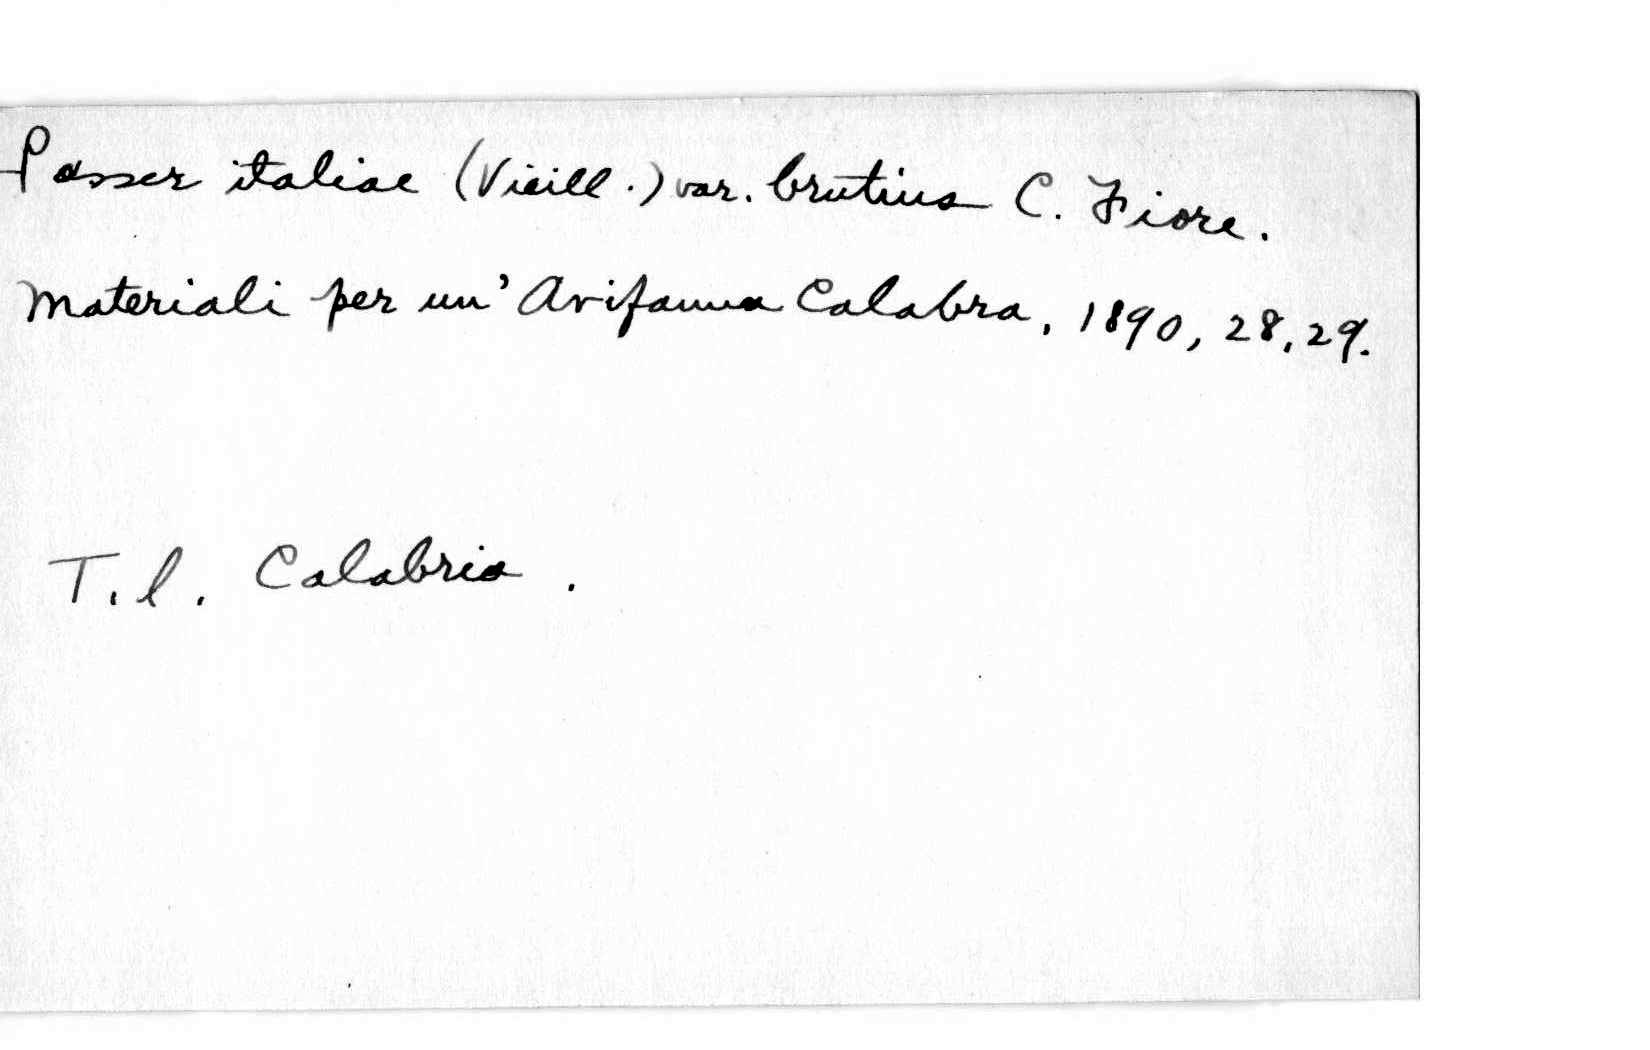 Passer italiae (Vieill.) var. brutius C. Fiore.
Materiali per un' Avifauna Calabra, 1890, 28, 29.
T. l. Calabria.